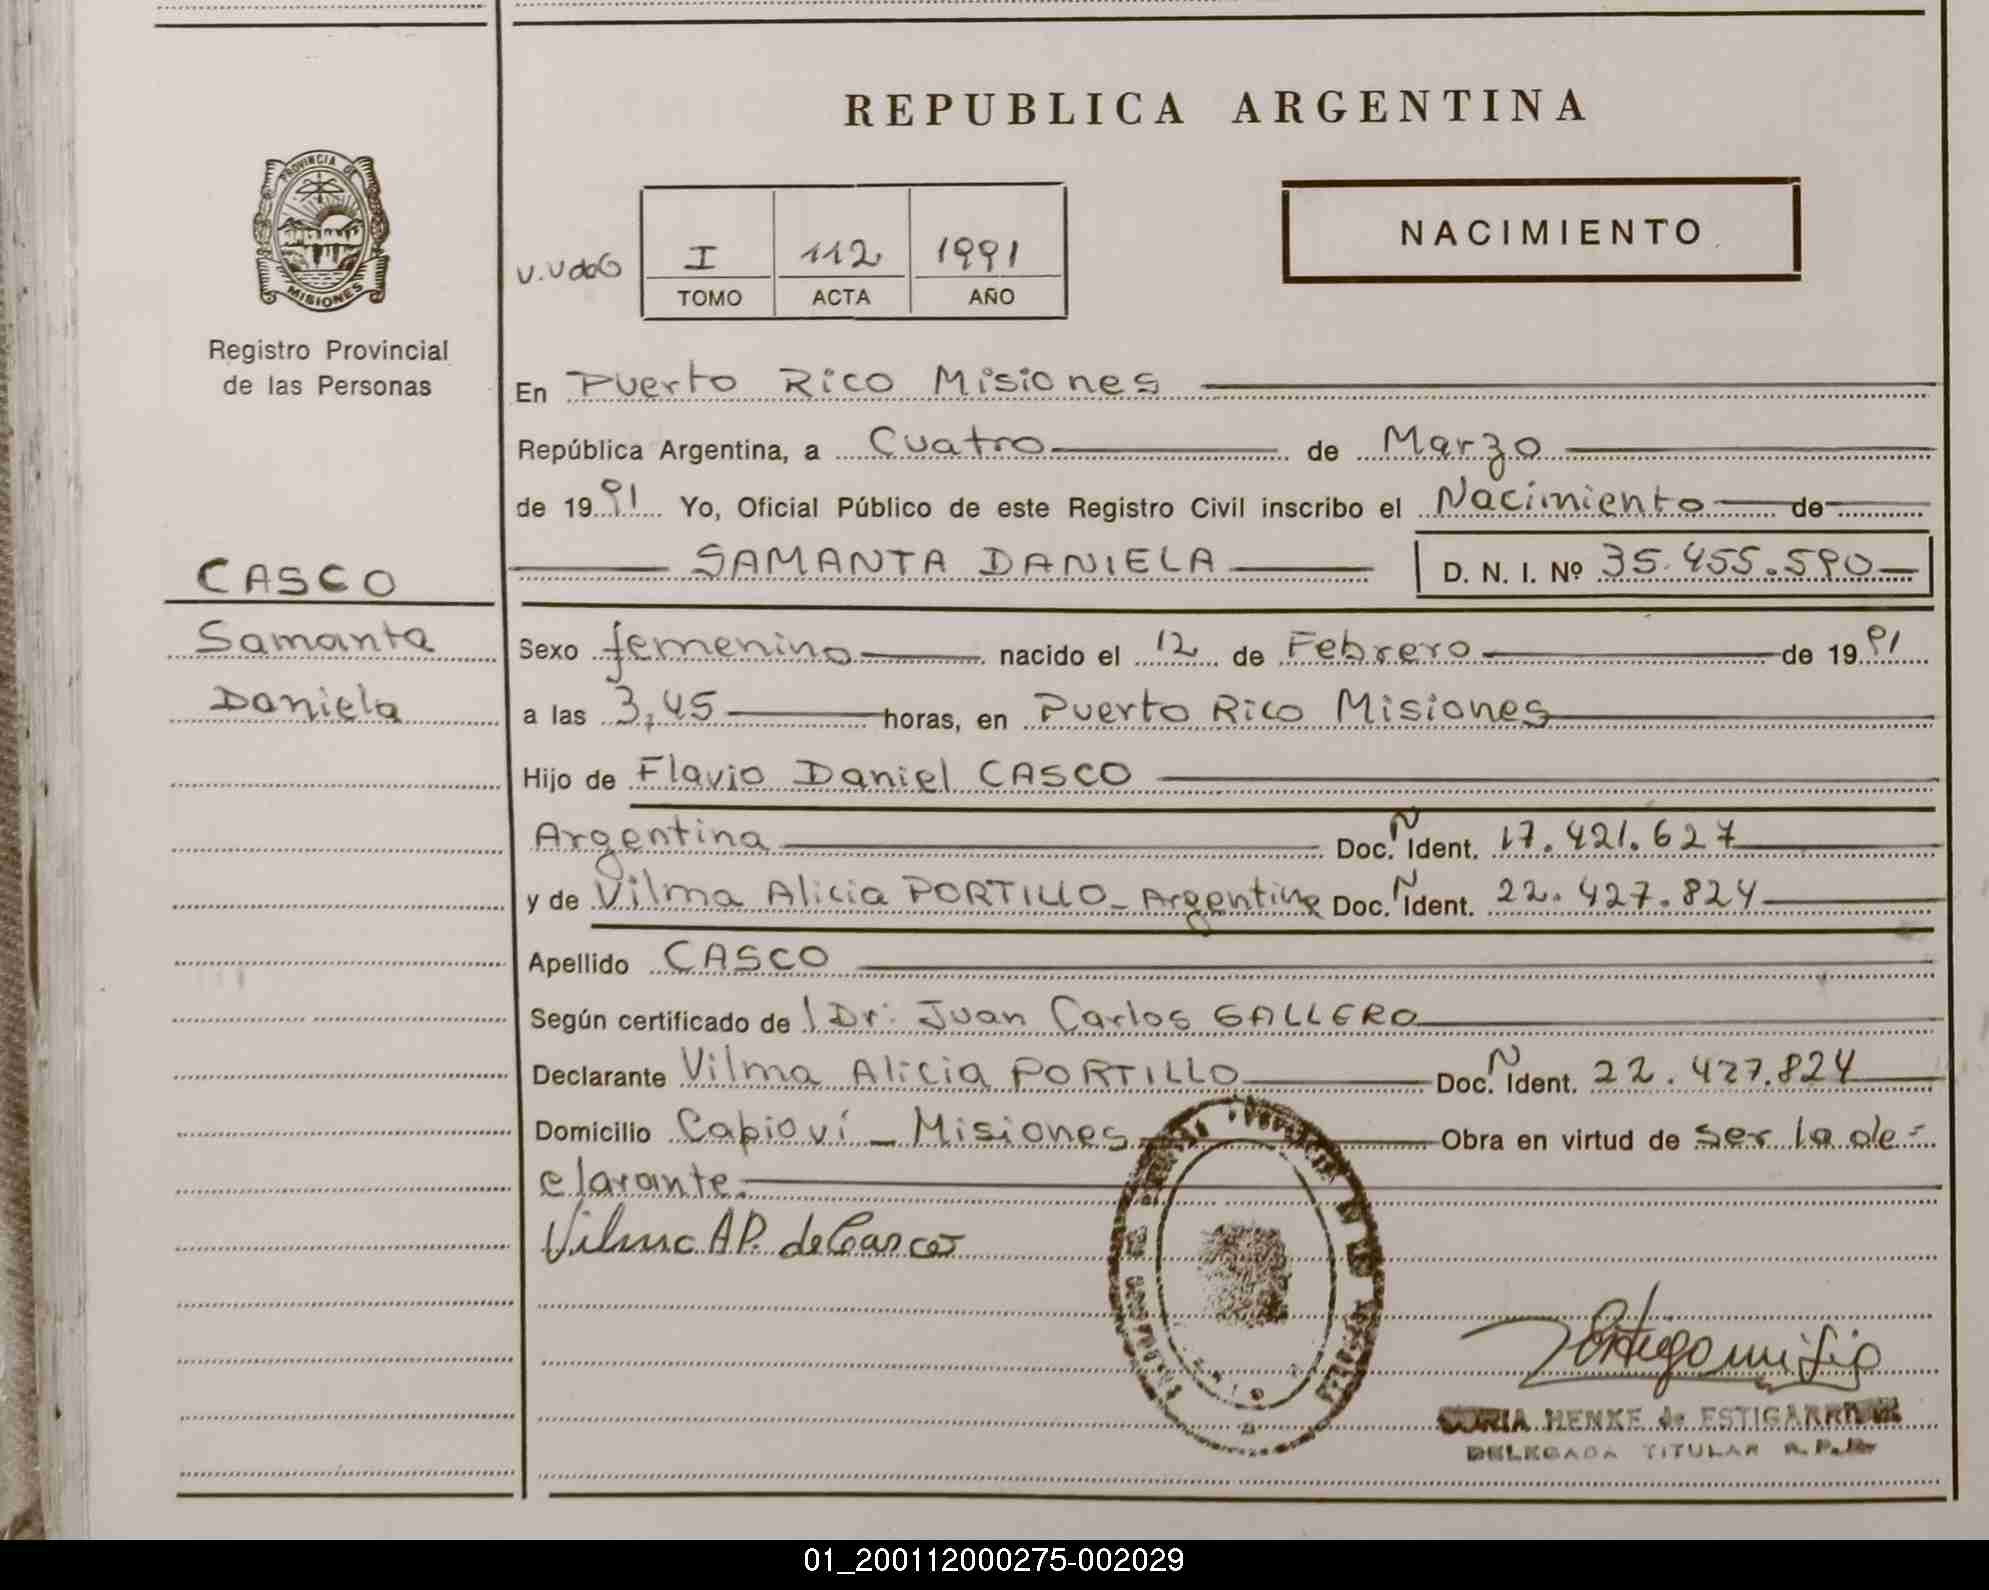 REPUBLICA ARGENTINA
PROVINCIA DE
MISIONES
Registro Provincial
de las Personas
I 112 1991
TOMO ACTA AÑO
NACIMIENTO
En Puerto Rico Misiones
República Argentina, a Cuatro de Marzo
de 1991 Yo, Oficial Público de este Registro Civil inscribo el Nacimiento de
SAMANTA DANIELA D. N. I. Nº 35.455.590
CASCO
Samanta
Daniela
Sexo femenino nacido el 12 de Febrero de 1991
a las 3,45 horas, en Puerto Rico Misiones
Hijo de Flavio Daniel CASCO
Argentina Doc. N Ident. 17.421.627
y de Vilma Alicia PORTILLO - Argentina Doc. N Ident. 22.427.824
Apellido CASCO
Según certificado de l Dr. Juan Carlos GALLERO
Declarante Vilma Alicia PORTILLO Doc. N Ident. 22.427.824
Domicilio Capioví - Misiones Obra en virtud de ser la de-
clarante.
Vilma A P. de Casco
HENKE de ESTIGARRIBIA
DELEGADA TITULAR R.P.P.
01_200112000275-002029